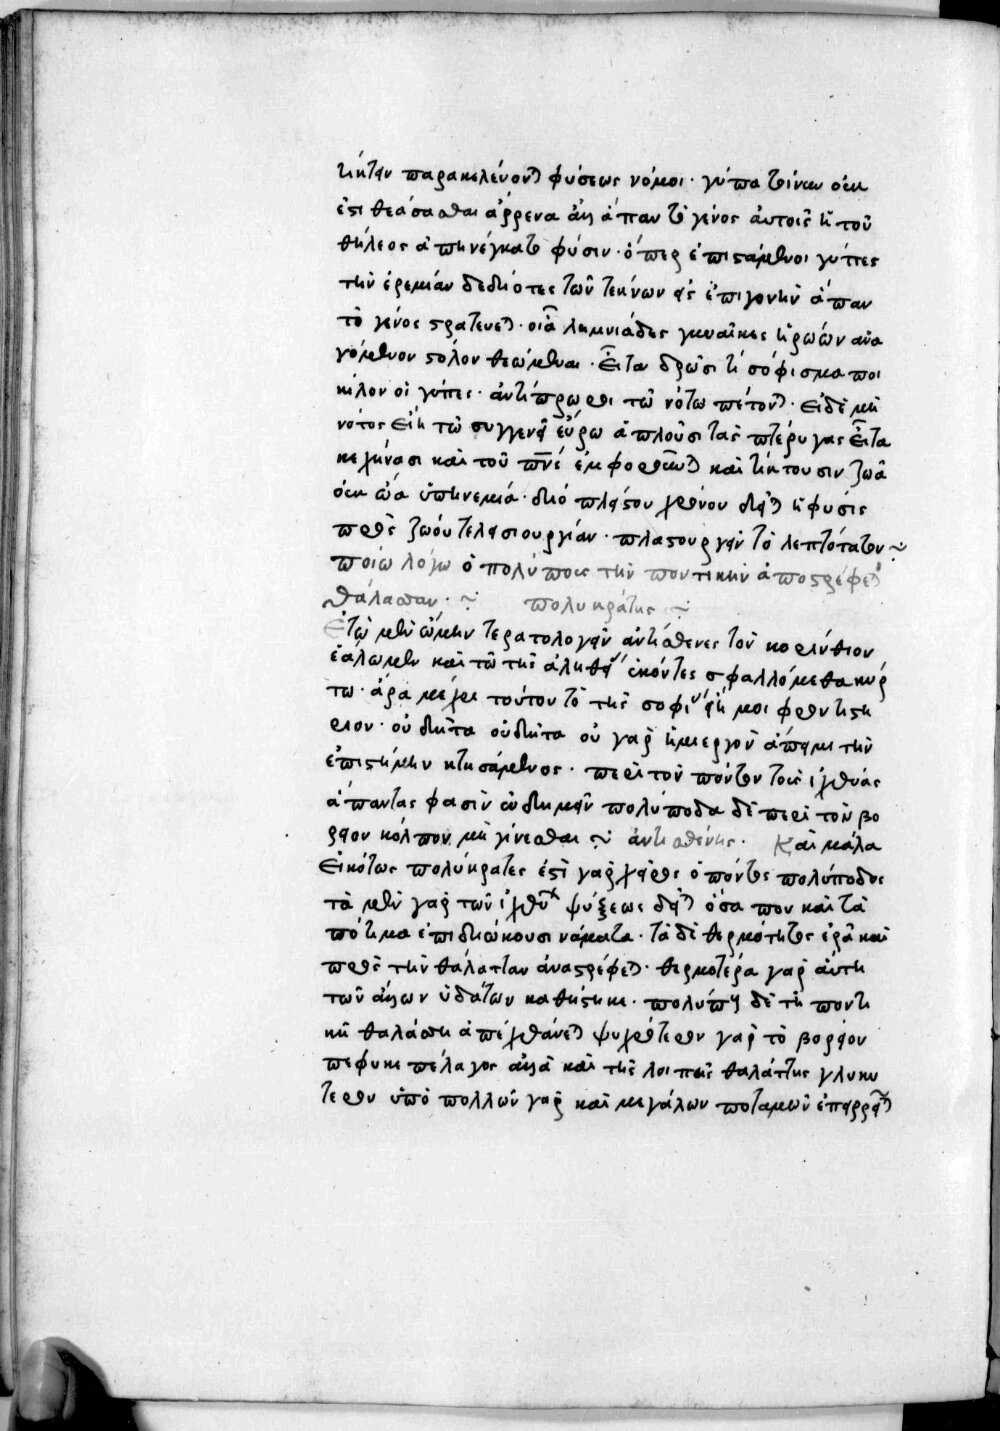 τίκτειν παρακελεύονται φύσεως νόμοι · γύπα τοίνυν οὐκ
ἔστι θεάσασθαι ἄρρενα ἀλλ' ἅπαν τὸ γένος αὐτοῖς ἡ τοῦ
θήλεος ἀπηνέγκατο φύσιν · ὅπερ ἐπιστάμενοι γύπες
τὴν ἐρημίαν δεδιότες τῶν τέκνων εἰς ἐπιγονὴν ἅπαν
τὸ γένος στρατεύεται · οἷα λημνιάδες γυναῖκες ἡρώων ἀνα
γόμενον στόλον θεώμεναι · εἶτα δρῶσί τι σόφισμα ποι
κίλον οἱ γύπες · ἀντίπρωροι τῷ νότῳ πέτονται · εἰ δὲ μὴ
νότος εἴη τῷ συγγενεῖ εὔρῳ ἁπλοῦσι τὰς πτέρυγας εἶτα
κεχήνασι καὶ τοῦ πνς ἐμφοροῦνται καὶ τίκτουσιν ζῶα
οὐκ ὠὰ ὑπηνέμια · διὸ πλείστου χρόνου δεῖται ἡ φύσις
πρὸς ζώου τελεσιουργίαν · πλαστουργεῖν τὸ λεπτότατον :~
ποίῳ λόγῳ ὁ πολύπους τὴν ποντικὴν ἀποστρέφεται
θάλασσαν · :~ πολυκράτης :~
Ἐγὼ μὲν ᾤμην τερατολογεῖν ἀντίσθενες τὸν κορίνθιον
ἑάλωμεν καὶ τῷ τῆς ἀληθείας ἑκόντες σφαλλόμεθα κύρ
τῳ · ἆρα μέχρι τούτου τὸ τῆς σοφίας μοι φροντιστή
ριον · οὐ δῆτα οὐδῆτα οὐ γὰρ ἡμίεργον ἄπειμι τὴν
ἐπιστήμην κτησάμενος · περὶ τὸν πόντον τοὺς ἰχθύας
ἅπαντας φασὶν εὐδημεῖν πολύποδα δὲ περὶ τὸν βό
ρειον κόλπον μὴ γίνεσθαι :~ ἀντισθένης · Καὶ μάλα
εἰκότως πολύκρατες ἐστὶ γὰρ χεῖρος ὁ πόντος πολύποδος
τὰ μὲν γὰρ τῶν ἰχθύων ψύξεως δεῖται ὅσα που καὶ τὰ
πότιμα ἐπιδιώκουσι νάματα · τὰ δὲ θερμότητος ἐρᾶ καὶ
πρὸς τὴν θάλατταν ἀναστρέφεται · θερμοτέρα γὰρ αὕτη
τῶν ἄλλων ὑδάτων καθήστηκε · πολύπους δὲ τῇ ποντι
κῇ θαλάσσῃ ἀπέχθάνεται ψυχρότερον γὰρ τὸ βόρειον
πέφυκε πέλαγος ἀλλὰ καὶ τῆς λοιπῆς θαλάττης γλυκύ
τερον ὑπὸ πολλῶν γὰρ καὶ μεγάλων ποταμῶν ἐπαρρεῖται